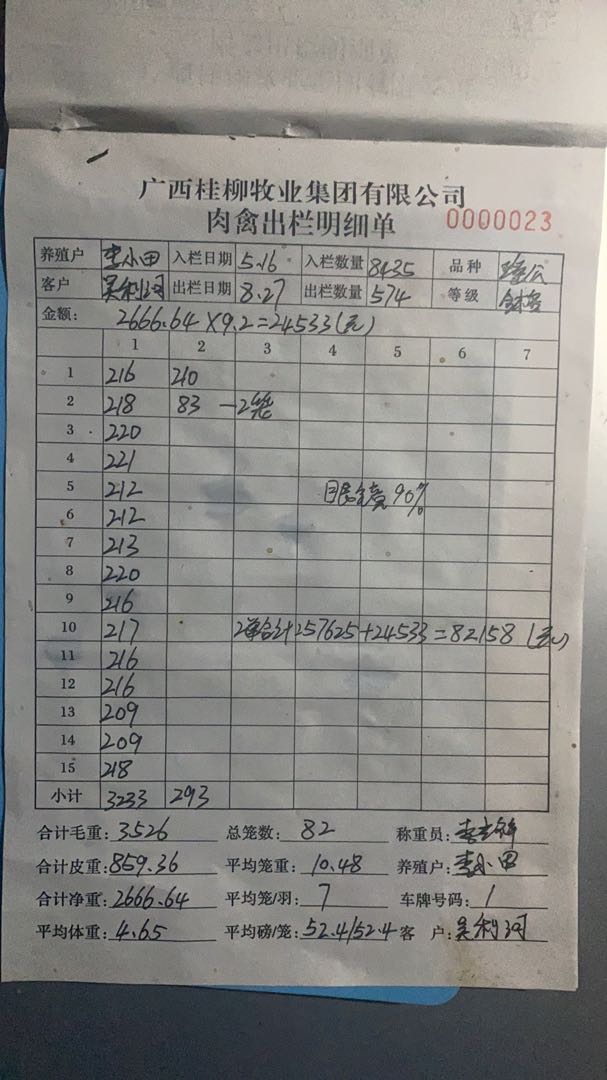 广西桂柳牧业集团有限公司
肉禽出栏明细单 0000023
养殖户 李小田 入栏日期 5.16 入栏数量 8435 品种
客户 吴利河 出栏日期 8.27 出栏数量 574 等级
金额: 2666.64×9.2=24533(元)
1 2 3 4 5 6 7
1 216 210
2 218 83 —2笼
3 220
4 221
5 212 90%
6 212
7 213
8 220
9 216
10 217 2单合计257625+24533=82158(元)
11 216
12 216
13 209
14 209
15 218
小计 3233 293
合计毛重: 3526 总笼数: 82 称重员:
合计皮重: 859.36 平均笼重: 10.48 养殖户: 李小田
合计净重: 2666.64 平均笼/羽: 7 车牌号码: 1
平均体重: 4.65 平均磅/笼: 52.4/52.4 客户: 吴利河